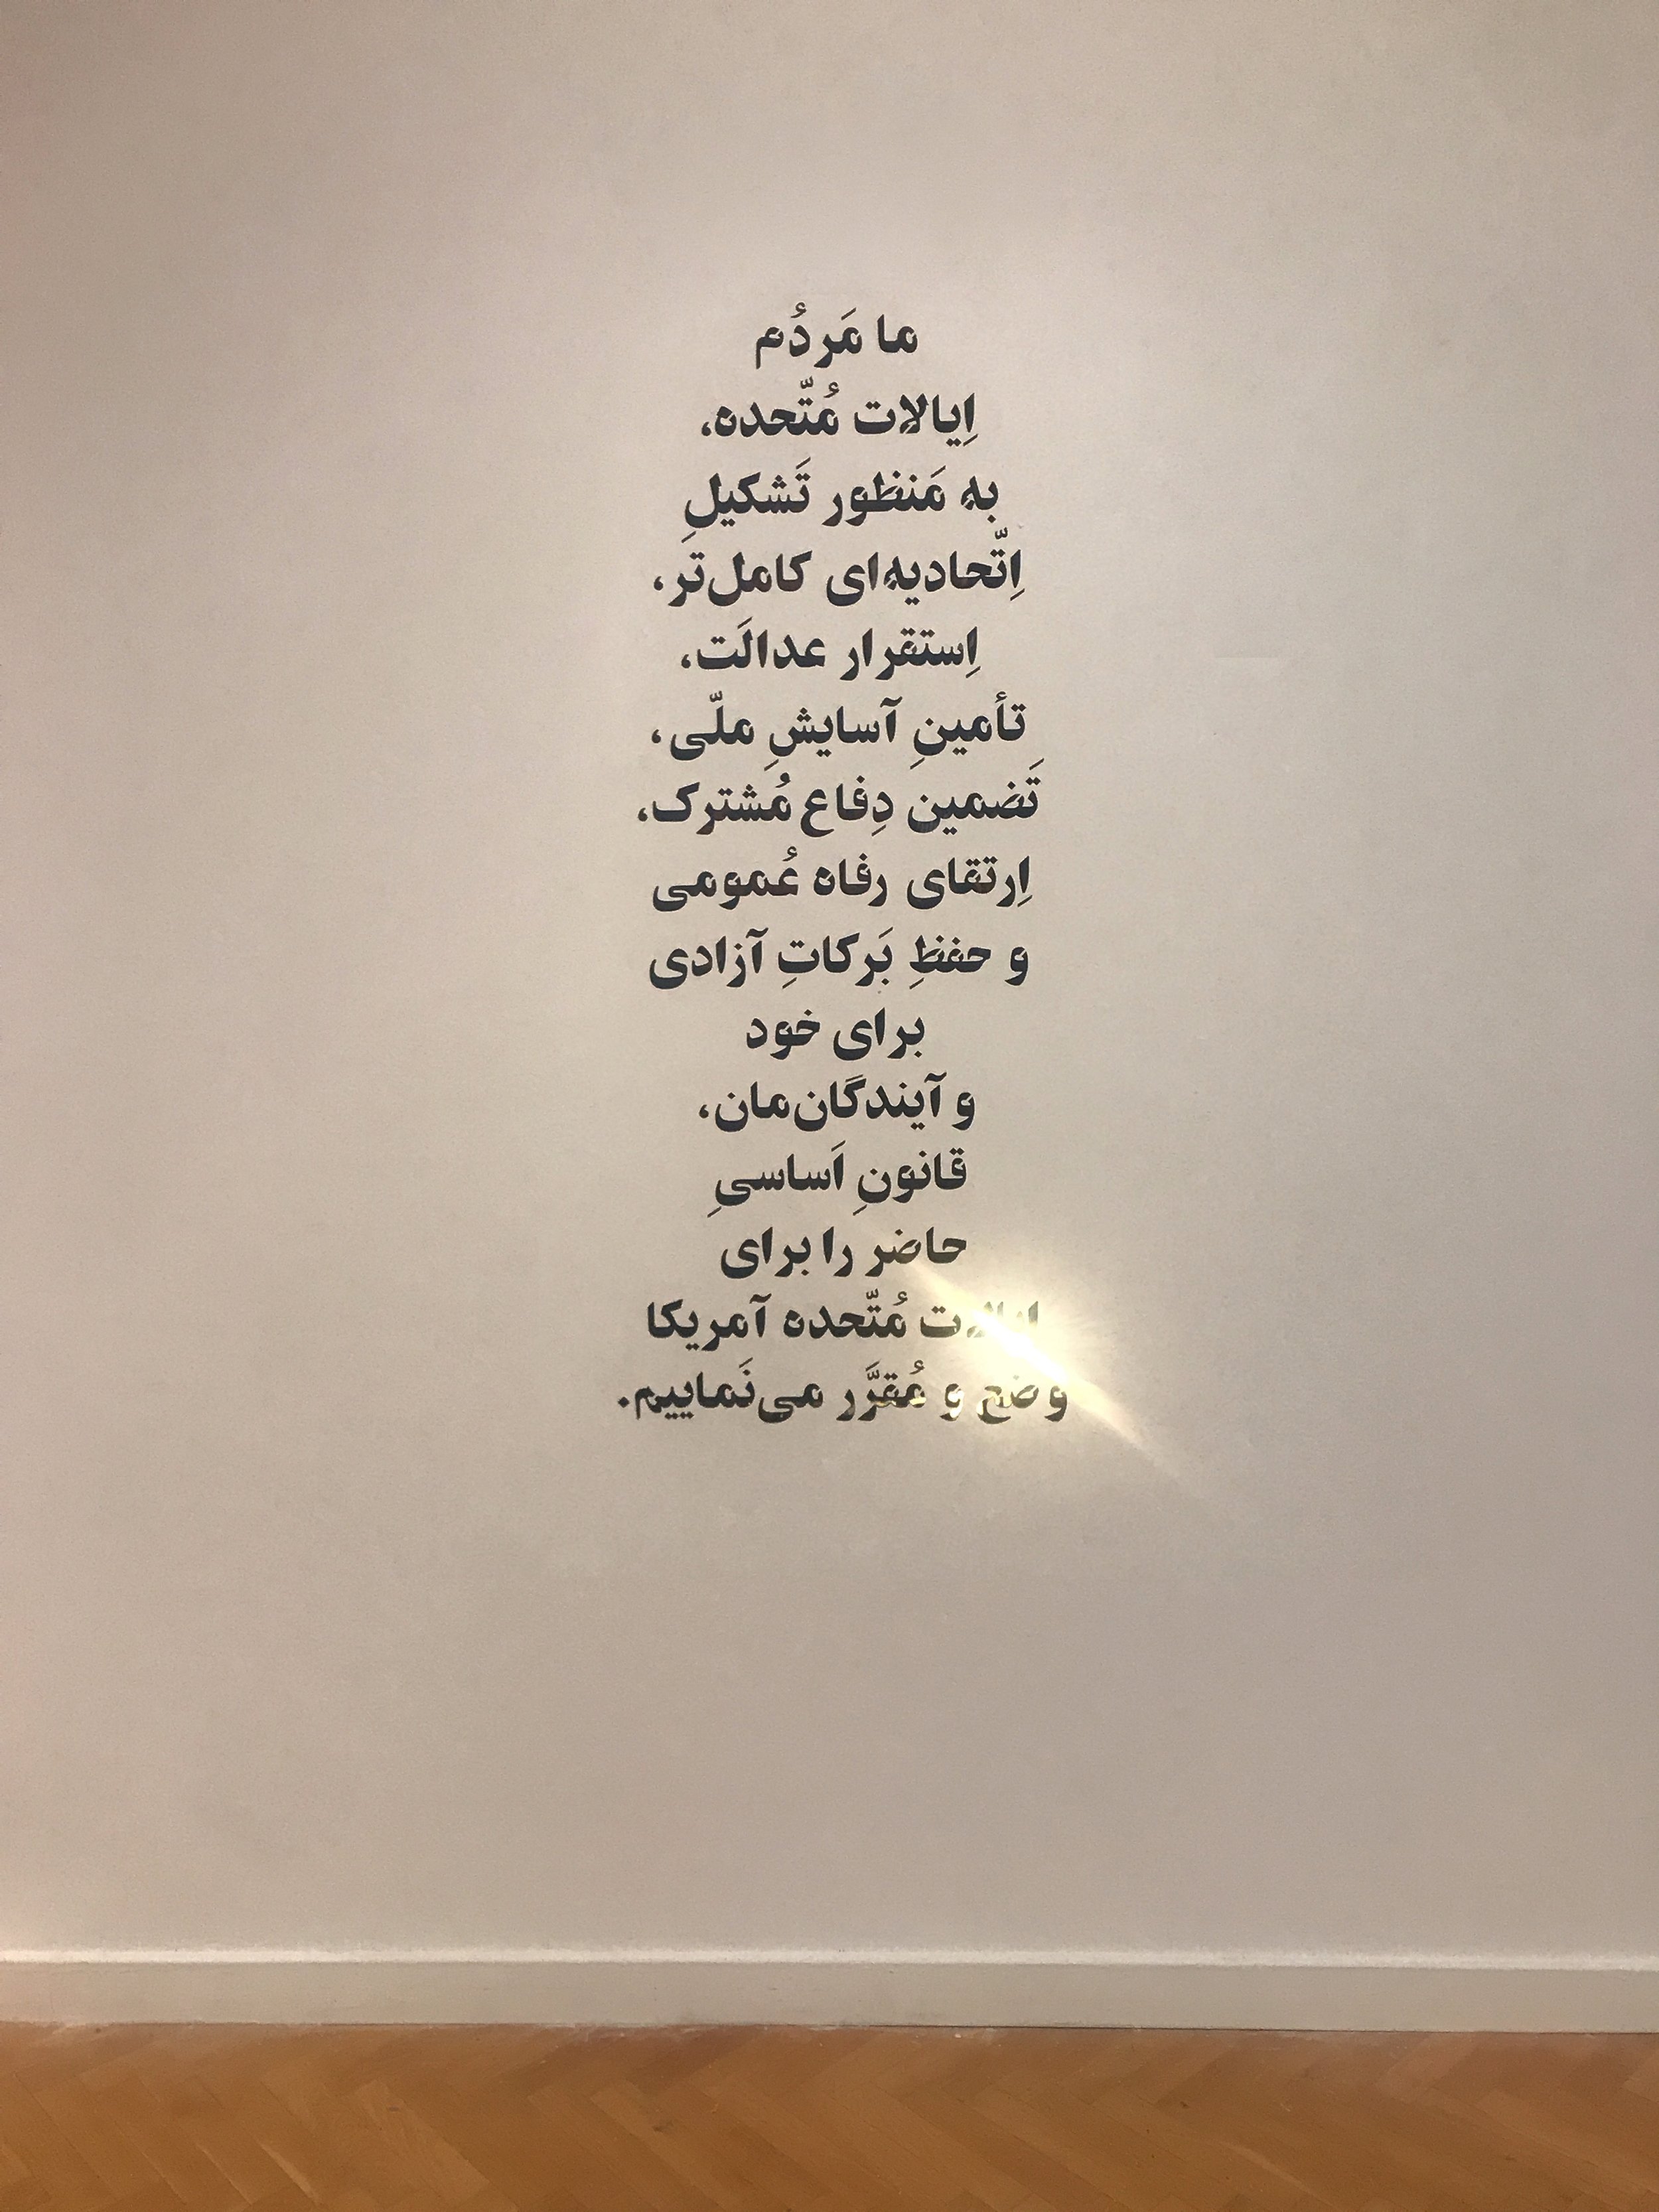 ما مَردُم
اِیالات مُتّحده،
به مَنظور تَشکیلِ
اِتّحادیه‌ای کامل‌تَر،
اِستقرار عدالَت،
تأمینِ آسایشِ ملّی،
تَضمین دِفاع مُشترک،
اِرتقای رفاه عُمومی
و حفظِ بَرکاتِ آزادی
برای خود
و آیندگان‌مان،
قانونِ اَساسیِ
حاضر را برای
ایالات مُتّحده آمریکا
وضع و مُقرَّر می‌نَماییم.